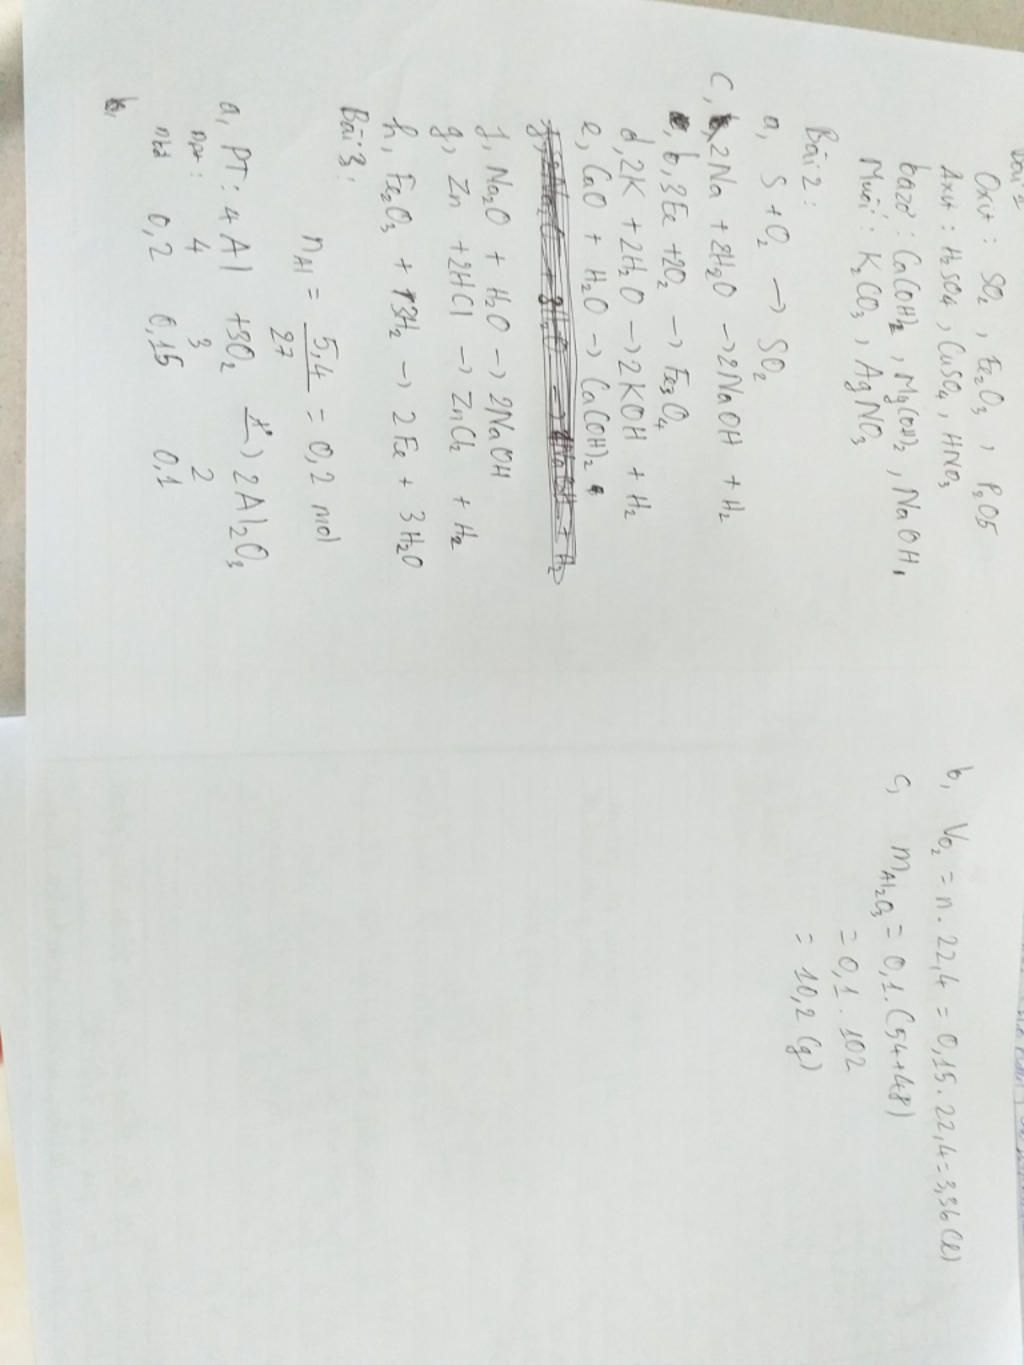 Bài 1
Oxit : SO2 , Fe2O3 , P2O5
Axit : H2SO4 , CuSO4 , HNO3
bazơ : Ca(OH)2 , Mg(OH)2 , NaOH ,
Muối : K2CO3 , AgNO3
Bài 2 :
a, S + O2 → SO2
c, 2Na + 2H2O → 2NaOH + H2
b, 3Fe + 2O2 → Fe3O4
d, 2K + 2H2O → 2KOH + H2
e, CaO + H2O → Ca(OH)2
f, Na2O + H2O → 2NaOH
g, Zn + 2HCl → ZnCl2 + H2
h, Fe2O3 + 3H2 → 2Fe + 3H2O
Bài 3 :
nAl = 5,4 / 27 = 0,2 mol
a, PT : 4Al + 3O2 t°→ 2Al2O3
npt : 4 3 2
nbđ 0,2 0,15 0,1
b, VO2 = n . 22,4 = 0,15 . 22,4 = 3,36 (l)
c, mAl2O3 = 0,1 . (54+48)
= 0,1 . 102
= 10,2 (g)